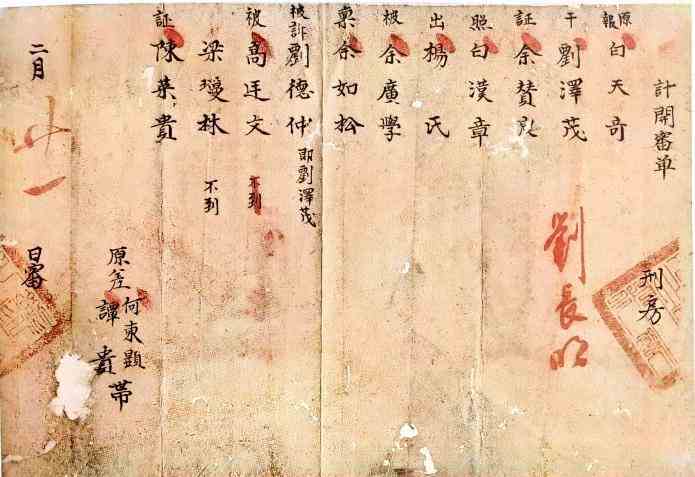 計開審单
刑房
原報 白天奇
干 劉澤茂
証 余賛
劉長明
照 白漢章
出 楊氏
被 余廣學
稟 余如松
被訴 劉德仲 即劉澤茂
被 高廷文 不到
梁璦林 不到
証 陳葉貴
原差 何東顕
譚貴 帯
二月廿一日審